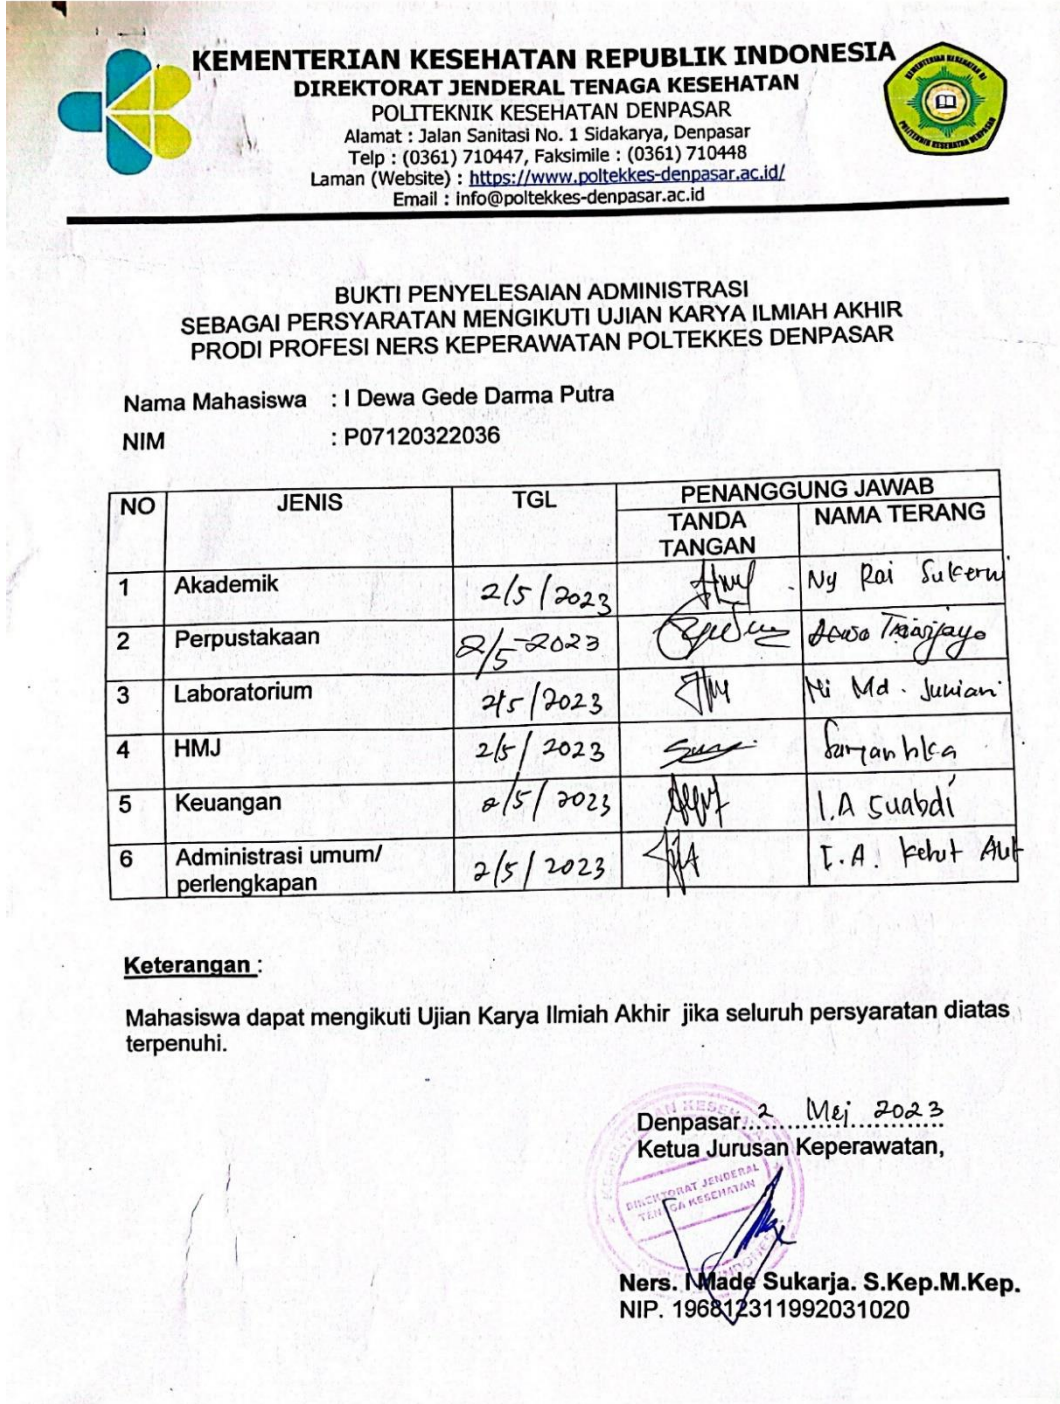 KEMENTERIAN KESEHATAN REPUBLIK INDONESIA
DIREKTORAT JENDERAL TENAGA KESEHATAN
POLITEKNIK KESEHATAN DENPASAR
Alamat : Jalan Sanitasi No. 1 Sidakarya, Denpasar
Telp : (0361) 710447, Faksimile : (0361) 710448
Laman (Website) : https://www.poltekkes-denpasar.ac.id/
Email : info@poltekkes-denpasar.ac.id
KEMENTERIAN KESEHATAN RI
POLITEKNIK KESEHATAN DENPASAR
BUKTI PENYELESAIAN ADMINISTRASI
SEBAGAI PERSYARATAN MENGIKUTI UJIAN KARYA ILMIAH AKHIR
PRODI PROFESI NERS KEPERAWATAN POLTEKKES DENPASAR
Nama Mahasiswa : I Dewa Gede Darma Putra
NIM : P07120322036
NO JENIS TGL PENANGGUNG JAWAB
TANDA TANGAN NAMA TERANG
1 Akademik 2/5/2023 Ny Rai Sukerni
2 Perpustakaan 2/5-2023 Dewa Triwijaya
3 Laboratorium 2/5/2023 Ni Md. Juniari
4 HMJ 2/5/2023
5 Keuangan 2/5/2023 I.A Suabdi
6 Administrasi umum/ perlengkapan 2/5/2023 I.A. Ketut
Keterangan :
Mahasiswa dapat mengikuti Ujian Karya Ilmiah Akhir jika seluruh persyaratan diatas
terpenuhi.
Denpasar...2 Mei 2023
Ketua Jurusan Keperawatan,
DIREKTORAT JENDERAL
TENAGA KESEHATAN
Ners. I Made Sukarja. S.Kep.M.Kep.
NIP. 196812311992031020